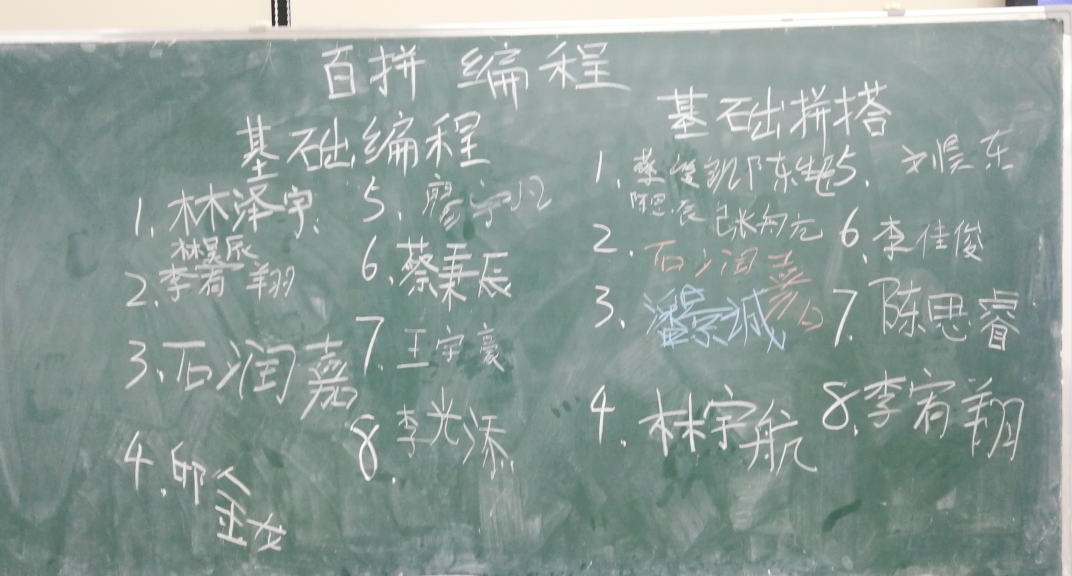 百拼 编程
基础编程
1. 林泽宇
林昊辰
2. 李宥翔
3. 石润嘉
4. 邱金龙
5. 廖宇凡
6. 蔡秉辰
7. 王宇豪
8. 李光添
基础拼搭
1. 蔡俊凯 陈
2. 石润嘉
3. 潘景诚
4. 林宇航
5. 刘昊东
6. 李佳俊
7. 陈思睿
8. 李宥翔